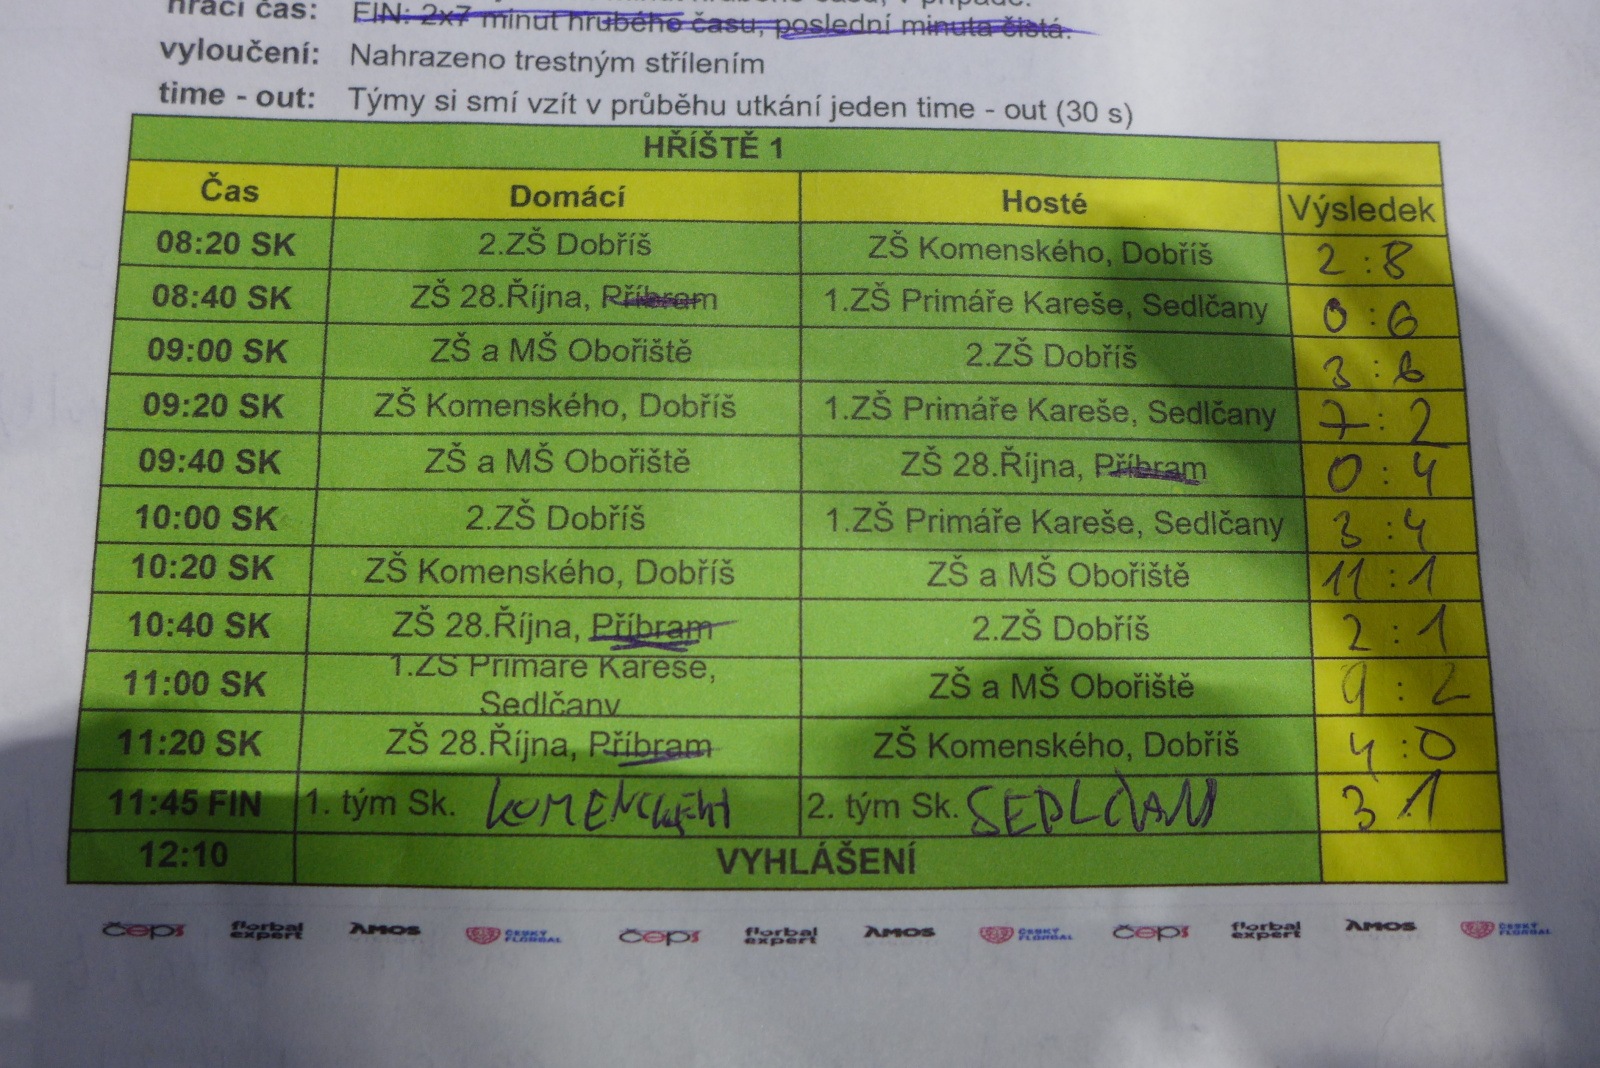 hrací čas:
FIN: 2x7 minut hrubého času, poslední minuta čistá.
vyloučení: Nahrazeno trestným střílením
time - out: Týmy si smí vzít v průběhu utkání jeden time - out (30 s)
HŘÍŠTĚ 1
Čas Domácí Hosté Výsledek
08:20 SK 2.ZŠ Dobříš ZŠ Komenského, Dobříš 2 : 8
08:40 SK ZŠ 28.Října, Příbram 1.ZŠ Primáře Kareše, Sedlčany 0 : 6
09:00 SK ZŠ a MŠ Obořiště 2.ZŠ Dobříš 3 : 6
09:20 SK ZŠ Komenského, Dobříš 1.ZŠ Primáře Kareše, Sedlčany 7 : 2
09:40 SK ZŠ a MŠ Obořiště ZŠ 28.Října, Příbram 0 : 4
10:00 SK 2.ZŠ Dobříš 1.ZŠ Primáře Kareše, Sedlčany 3 : 4
10:20 SK ZŠ Komenského, Dobříš ZŠ a MŠ Obořiště 11 : 1
10:40 SK ZŠ 28.Října, Příbram 2.ZŠ Dobříš 2 : 1
11:00 SK 1.ZŠ Primáře Kareše, Sedlčany ZŠ a MŠ Obořiště 9 : 2
11:20 SK ZŠ 28.Října, Příbram ZŠ Komenského, Dobříš 4 : 0
11:45 FIN 1. tým Sk. 2. tým Sk. SEDLČANY 3 : 1
12:10 VYHLÁŠENÍ
čeps florbal expert AMOS ČESKÝ FLORBAL čeps florbal expert AMOS ČESKÝ FLORBAL čeps florbal expert AMOS ČESKÝ FLORBAL